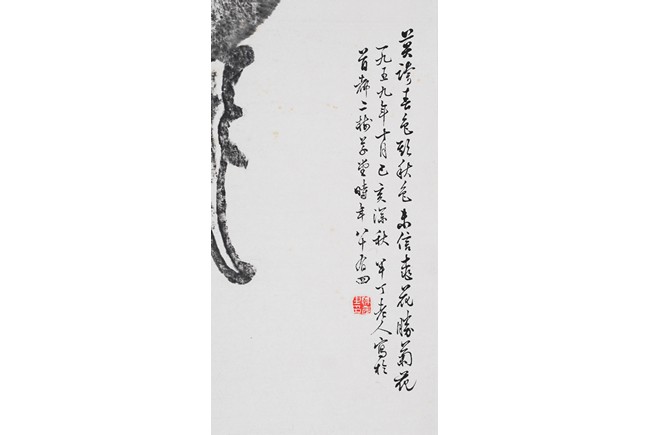 莫誇春色欺秋色未信桃花勝菊花
一九五九年十月己亥深秋半丁老人寫於
首都二樹草堂時年八十有四